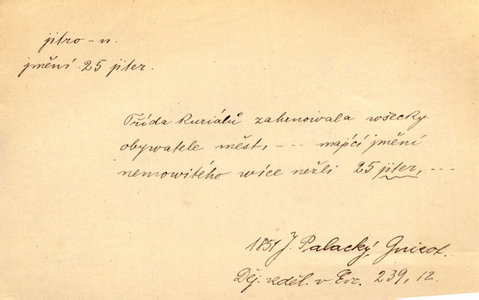 jitro – n.
jmění 25 jiter.
Třída kuriálů zahrnowala wšecky
obywatele měst, --- mající jmění
nemowitého wíce nežli 25 jiter, ---
1851 J. Palacký, Guizot.
Děj. vzděl. v Evr. 239, 12.